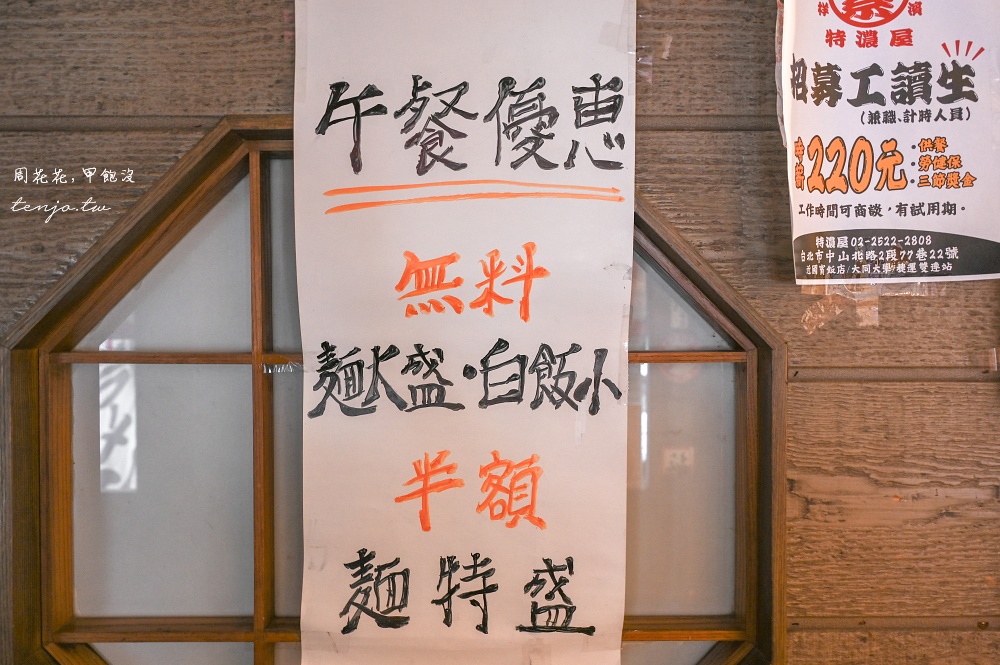 午餐優惠
無料
麵大盛・白飯小
半額
麵特盛
特濃屋
招募工讀生
(兼職、計時人員)
時薪220元
・供餐
・勞健保
・三節獎金
工作時間可商談，有試用期。
特濃屋 02-2522-2808
台北市中山北路2段77巷22號
老爺
周花花, 甲飽沒
tenjo.tw
ラーメン